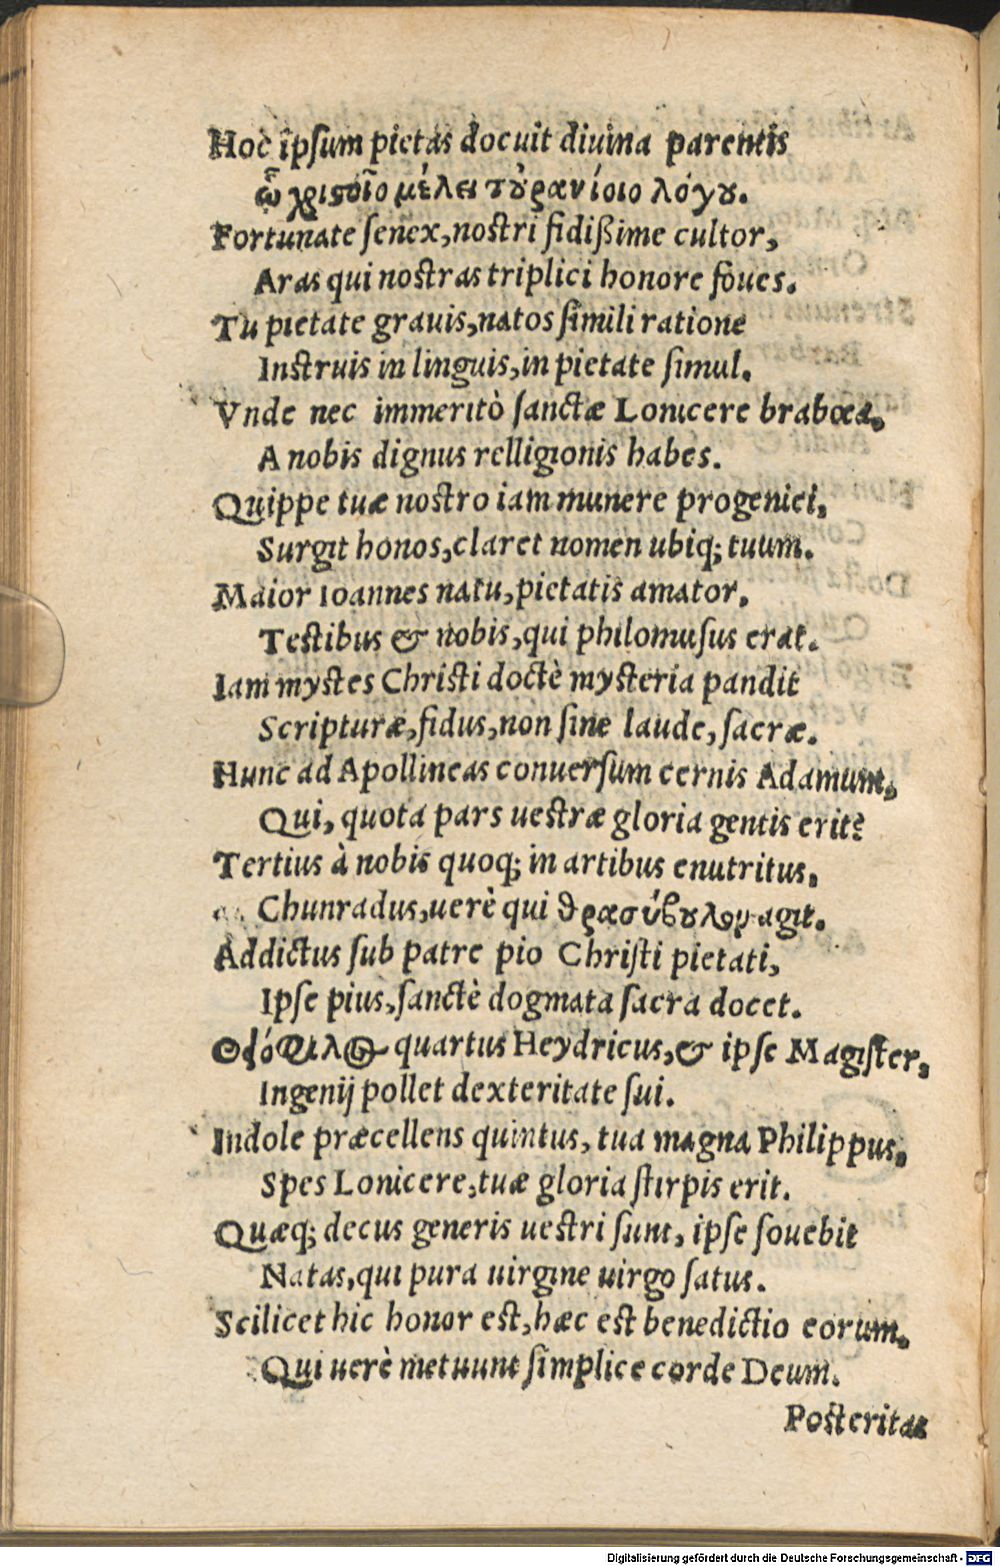 Hoc ipsum pietas docuit diuina parentis
ᾧ χριστοῖο μέλει τοὐρανίοιο λόγου.
Fortunate senex, nostri fidißime cultor,
Aras qui nostras triplici honore foues.
Tu pietate grauis, natos simili ratione
Instruis in linguis, in pietate simul.
Vnde nec immeritò sanctæ Lonicere brabœa,
A nobis dignus relligionis habes.
Quippe tuæ nostro iam munere progeniei,
Surgit honos, claret nomen ubiq; tuum.
Maior Ioannes natu, pietatis amator,
Testibus & nobis, qui philomusus erat.
Iam mystes Christi doctè mysteria pandit
Scripturæ, fidus, non sine laude, sacræ.
Hunc ad Apollineas conuersum cernis Adamum,
Qui, quota pars uestræ gloria gentis erit?
Tertius à nobis quoq; in artibus enutritus,
Chunradus, uerè qui θρασύβουλον agit.
Addictus sub patre pio Christi pietati,
Ipse pius, sanctè dogmata sacra docet.
Θεόφιλος quartus Heydricus, & ipse Magister,
Ingenij pollet dexteritate sui.
Indole præcellens quintus, tua magna Philippus,
Spes Lonicere, tuæ gloria stirpis erit.
Quæq; decus generis uestri sunt, ipse fouebit
Natas, qui pura uirgine uirgo satus.
Scilicet hic honor est, hæc est benedictio eorum,
Qui uerè metuunt simplice corde Deum.
Posteritas
Digitalisierung gefördert durch die Deutsche Forschungsgemeinschaft - DFG